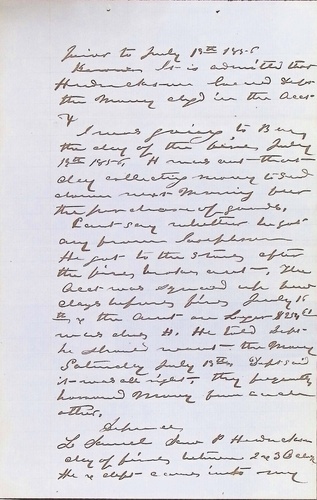 prior to July 13th 1856
It is admitted that
Hendrickson loaned Deft
the Money chgd in the Acct
&
I was going to B on
the day of the fire, July
13th 1856, H was out that
day collecting money to send
down next Morning for
the purchase of goods.
Cant say whether he got
any from Josephson
He got to the store after
the fire broke out. The
Acct was squared up two
days before fire July 16
th & the Amt on Ledger $250
was due H. He told Deft
he should want the Money
Saturday July 13th, Deft said
it was all right, they frequently
borrowed Money from each
other.
Defence
L Samuel Saw P Hendrickson
day of fire between 2 & 3 O clock
He & deft came into my